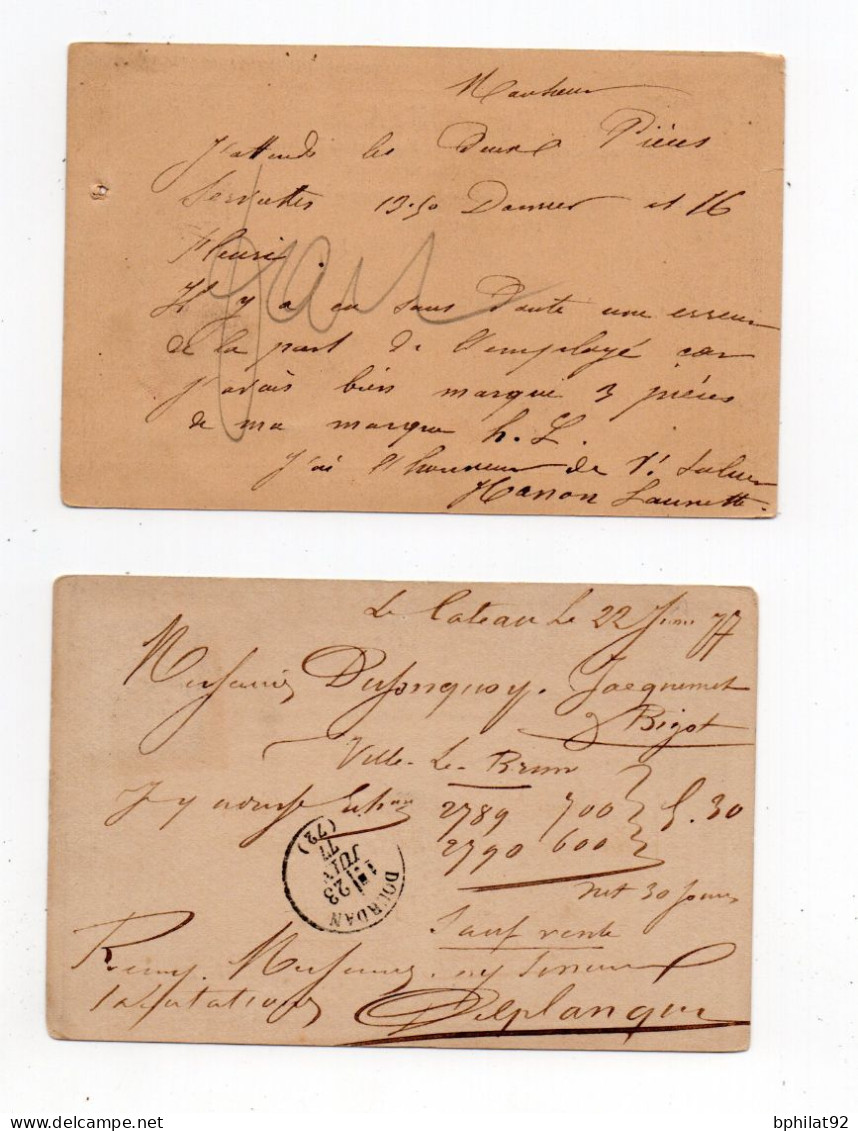 Monsieur
J'attends les Deux Pièces
Serviettes 13.50 Damier et 16
fleuri.
Il y a eu sans Doute une erreur
de la part de l'employé car
j'avais bien marqué 3 pièces
de ma marque h. L.
J'ai l'honneur de V. Saluer
Hanon Laurette
Le Cateau Le 22 77
Messieurs Dufonquoy. Jacquemet
& Bizot
Ville-Le-Brun
J'y adresse
2789 700
2790 600 } 5.30
net 30 jours
Sauf vente
DOURDAN
1E
23
JUIN
77
(72)
Recevez Messieurs mes sincères
salutations
Delplanque
bphilat92